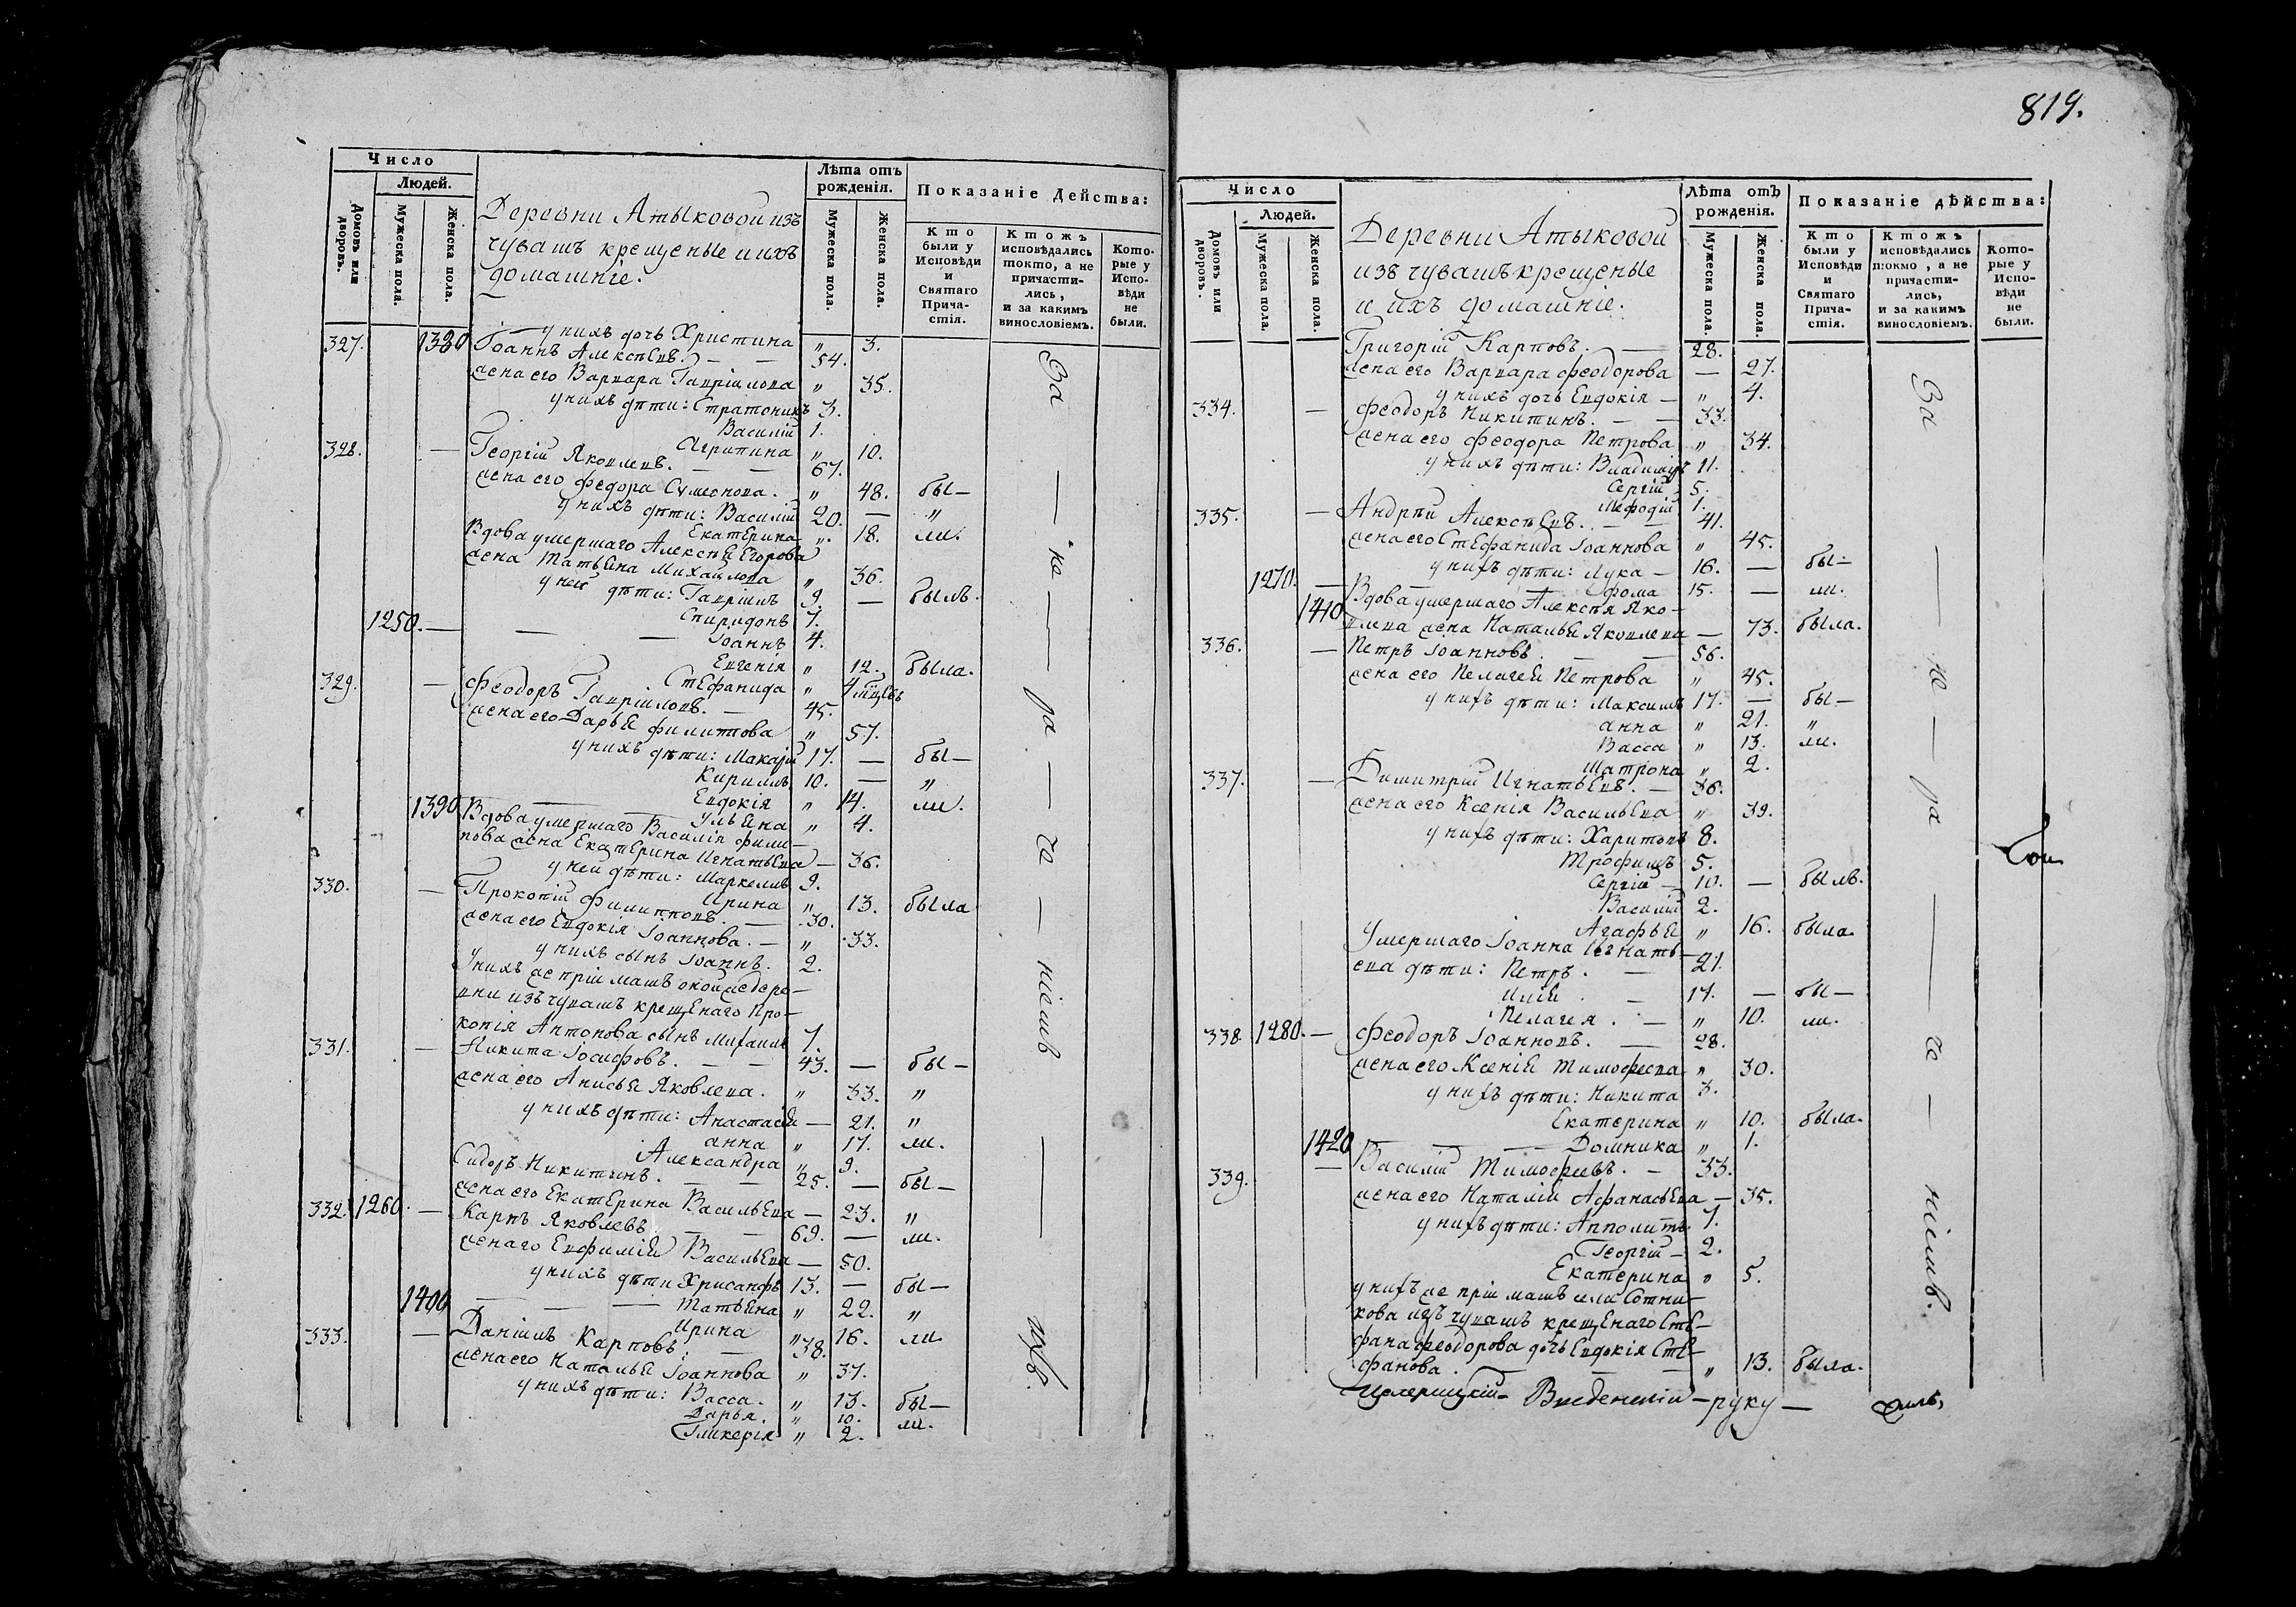 819.
Число
Людей.
Домовъ или дворовъ.
Мужеска пола.
Женска пола.
Деревни Атыковой изъ
чувашъ крещеные и ихъ
домашніе.
Лѣта отъ рожденія.
Мужеска пола.
Женска пола.
Показаніе Действа:
Кто были у Исповѣди и Святаго Причастія.
Ктожъ исповѣдались токто, а не причастились, и за какимъ винословіемъ.
Которые у Исповѣди не были.
1380 у нихъ дочь Христина „ 3.
327. Іоаннъ Алексѣевъ. — — 54.
жена его Варвара Гавріилова „ 35.
у нихъ дѣти: Стратоникъ 3.
Василій 1.
Агрипина „ 10.
328. — Георгій Яковлевъ. — — 67.
жена его Федора Сумеонова. „ 48. бы—
у нихъ дѣти: Василій 20. — „
Екатерина „ 18. ли.
Вдова умершаго Алексѣя Егорова
жена Татьяна Михайлова „ 36.
у ней дѣти: Гавріилъ 9. — былъ.
Спиридонъ 7.
1250. — — — Іоаннъ 4.
Евгенія „ 12. была.
Стефанида „ 4 мѣсяц.
329. — Феодоръ Гавріиловъ. — 45.
жена его Дарья Филиппова „ 57.
у нихъ дѣти: Макарій 17. — бы—
Кириллъ 10. — „
Евдокія „ 14. ли.
1390 — Ульяна „ 4.
Вдова умершаго Василія Фили—
пова жена Екатерина Игнатьева — 36.
у ней дѣти: Маркеллъ 9.
Ирина „ 13. была
330. — Прокопій Филипповъ. — 30.
жена его Евдокія Іоаннова. — „ 33.
у нихъ сынъ Іоаннъ. 2.
У нихъ же пріймашъ оной же дере—
вни изъ чувашъ крещенаго Про—
копія Антонова сынъ Михаилъ 7.
331. — Никита Іосифовъ. — — 43. — бы—
жена его Анисья Яковлева. „ 33. „
у нихъ дѣти: Анастасія — 21. „
Анна „ 17. ли.
Александра „ 9.
Сидоръ Никитинъ. — — 25. — бы—
жена его Екатерина Васильева — 23. „
332. 1260. — Карпъ Яковлевъ — — 69. — ли.
жена его Евфимія Васильева — 50.
у нихъ дѣти Хрисанфъ 13. — бы—
1400 — — — Татьяна „ 22. „
Ирина „ 16. ли
333. — Даніилъ Карповъ. — 38.
жена его Наталья Іоаннова „ 37.
у нихъ дѣти: Васса. „ 13. бы—
Дарья. „ 10. ли.
Гликерія „ 2.
За — не — ра — че — ніемъ
Число
Людей.
Домовъ или дворовъ.
Мужеска пола.
Женска пола.
Деревни Атыковой
изъ чувашъ крещеные
и ихъ домашніе.
Лѣта отъ рожденія.
Мужеска пола.
Женска пола.
Показаніе дѣйства:
Кто были у Исповѣди и Святаго Причастія.
Ктожъ исповѣдались токмо, а не причастились, и за какимъ винословіемъ.
Которые у Исповѣди не были.
Григорій Карповъ. — 28.
жена его Варвара Феодорова — 27.
у нихъ дочь Евдокія — „ 4.
334. — Феодоръ Никитинъ. — — 33.
жена его Феодора Петрова „ 34.
у нихъ дѣти: Владиміръ 11.
Сергій 5.
Мефодій 1.
335. — Андрей Алексѣевъ. — — 41.
жена его Стефанида Іоаннова „ 45.
у нихъ дѣти: Лука — 16. — бы—
1270. — — — Фома 15. — ли.
Вдова умершаго Алексѣя Яко—
1410 влева жена Наталья Яковлева — 73. была.
336. — Петръ Іоанновъ. — — 56.
жена его Пелагея Петрова „ 45.
у нихъ дѣти: Максимъ 17. — бы—
Анна „ 21. „
Васса „ 13. ли.
Матрона „ 2.
337. — Димитрій Игнатьевъ. — 36.
жена его Ксенія Васильева „ 39.
у нихъ дѣти: Харитонъ 8.
Трофимъ 5.
Сергій — 10. — былъ.
Василій 2.
Агафья „ 16. была.
Умершаго Іоанна Игнать—
ева дѣти: Петръ. — 21.
Илія. — 17. — бы—
Пелагея. — „ 10. ли.
338. 1280. — Феодоръ Іоанновъ. — 28.
жена его Ксенія Тимофеева „ 30.
у нихъ дѣти: Никита 3.
Екатерина „ 10. была.
1420 — — — Домника „ 1.
339. — Василій Тимофеевъ. — 33.
жена его Наталія Афанасьева — 35.
у нихъ дѣти: Апполитъ 7.
Георгій — 2.
Екатерина „ 5.
у нихъ же пріймашъ села Сотни—
кова изъ чувашъ крещенаго Сте—
фана Феодорова дочь Евдокія Сте—
фанова. — — „ 13. была.
За — не — ра — че — ніемъ.
Введенскій — руку —